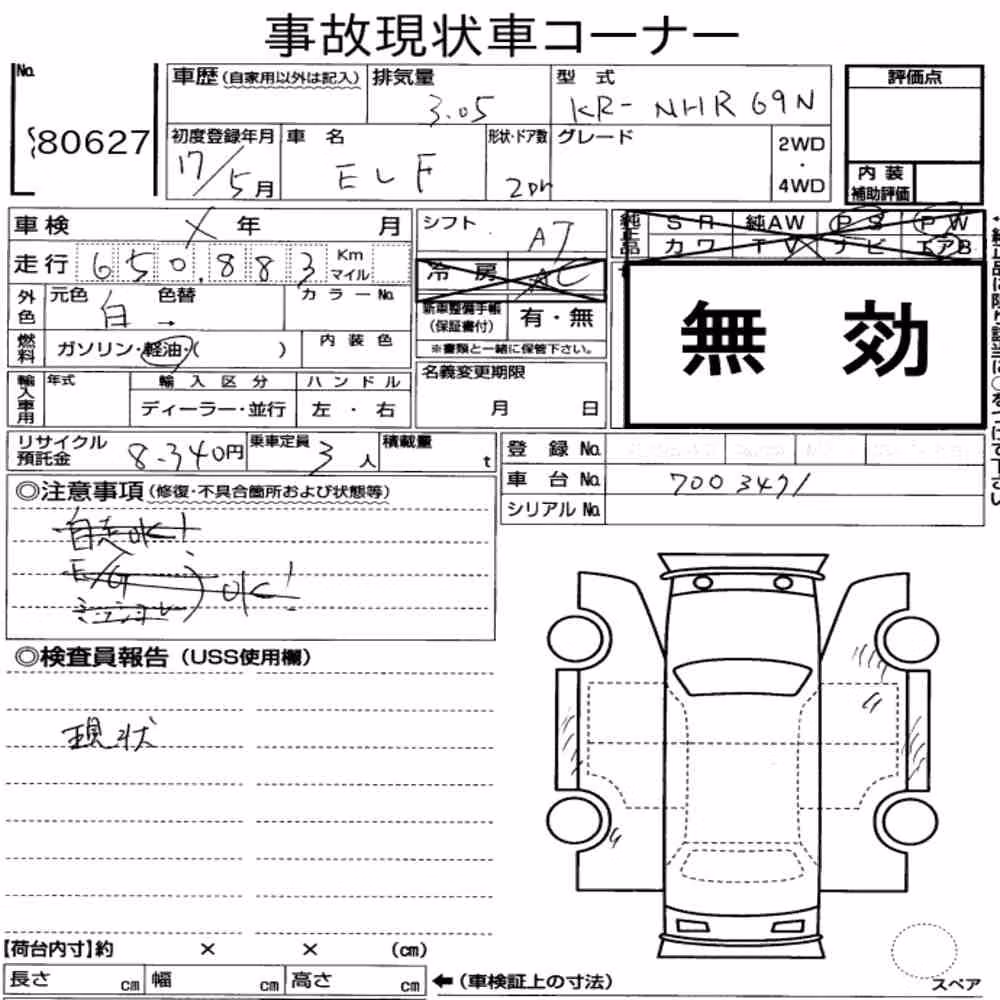 事故現状車コーナー
No. 80627
車歴 (自家用以外は記入) 排気量 3.05 型式 KR-NHR69N
初度登録年月 17/5月 車名 ELF 形状・ドア数 2DR グレード 2WD・4WD
評価点
内装補助評価
車検 × 年 月
走行 650,883 Km マイル
外色 元色 白 色替 → カラーNo.
燃料 ガソリン・軽油・( ) 内装色
輸入車用 年式 輸入区分 ハンドル
ディーラー・並行 左・右
シフト AT
冷房 AC
新車整備手帳 (保証書付) 有・無
※書類と一緒に保管下さい。
名義変更期限
月 日
純正品 SR 純AW PS PW
カワ TV ナビ エアB
無効
リサイクル預託金 8.340円 乗車定員 3人 積載量 t
登録No.
車台No. 7003471
シリアルNo.
◎注意事項 (修復・不具合箇所および状態等)
自走OK!
E/G
ミッション OK!
◎検査員報告 (USS使用欄)
現状
【荷台内寸】約 × × (cm)
長さ cm 幅 cm 高さ cm ←(車検証上の寸法)
スペア